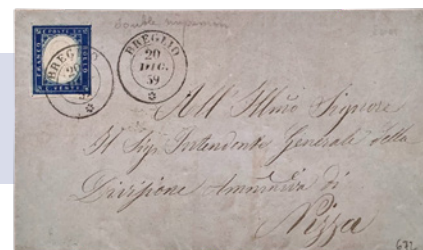 double impression
BREGLIO
20
DIC.
59
BREG
20
FRANCO
BOLLO
All' Illmo Signore
Il Sigr Intendente Generale della
Divisione Amminiva di
Nizza